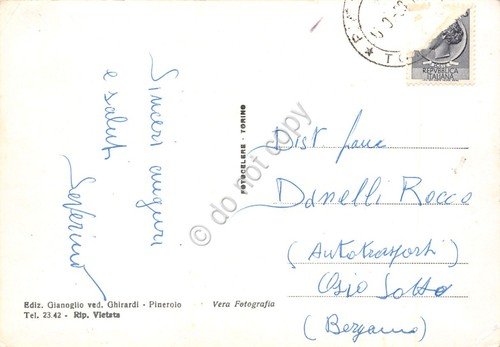 Sinceri auguri
e saluti
Severino
FOTOCELERE - TORINO
Ediz. Gianoglio ved. Ghirardi - Pinerolo
Tel. 23.42 - Rip. Vietata
Vera Fotografia
REPVBBLICA
ITALIANA
Dist
Danelli Rocco
(Autotrasporti)
Osio Sotto
(Bergamo)
do not copy